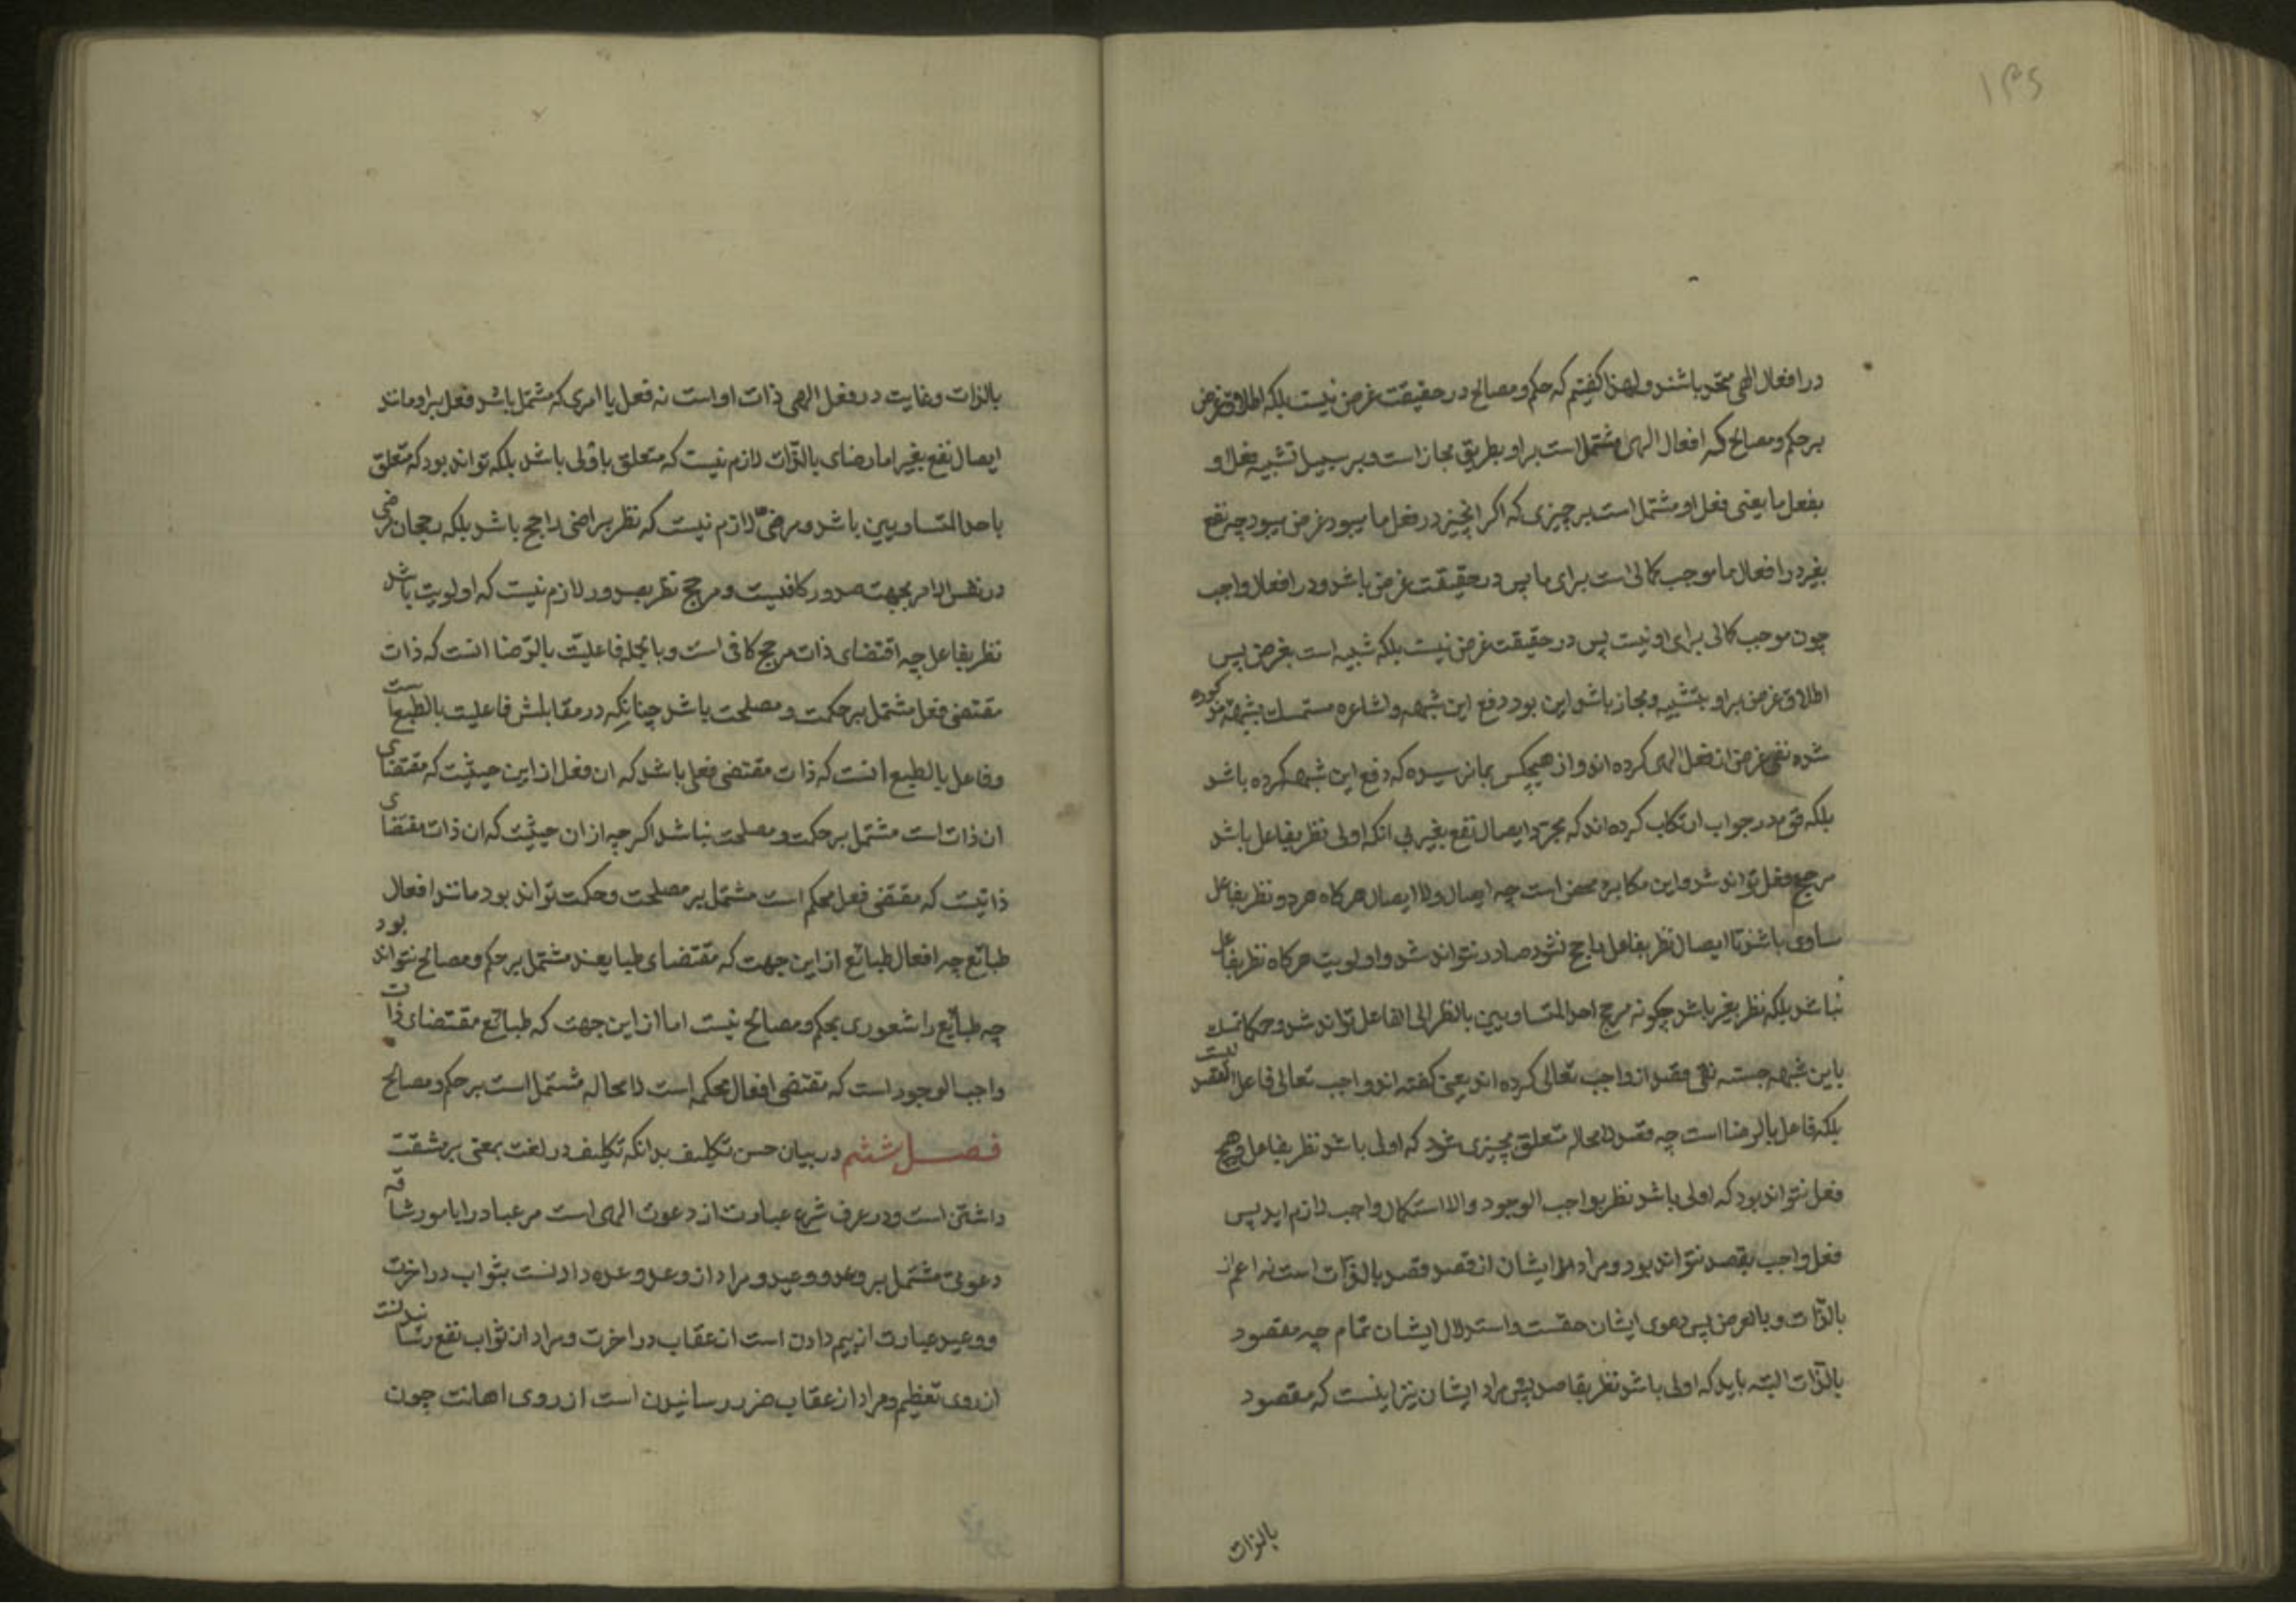 ۱۳۵
در افعال الهی متحد باشند و لهذا کفتیم که حکم و مصالح در حقیقت غرض نیست بلکه اطلاق غرض
بر حکم و مصالح که افعال الهی مشتمل است بر او بطریق مجاز است و بر سبیل تشبیه فعل او
بفعل ما یعنی فعل او مشتمل است بر چیزی که اکر انچیز در فعل ما میبود غرض میبود چه نفع
بغیر در افعال ما موجب کمالی است برای ما پس در حقیقت غرض باشد و در افعال واجب
چون موجب کمالی برای او نیست پس در حقیقت غرض نیست بلکه شبیه است بغرض پس
اطلاق غرض بر او بتشبیه و مجاز باشد این بود دفع این شبهه و اشاعره متمسک بشبهه مذکوره
شده نفی غرض از فعل الهی کرده اند و از هیچکس بما نرسیده که دفع این شبهه کرده باشد
بلکه قوم در جواب ارتکاب کرده اند که مجرد ایصال نفع بغیر بی انکه اولی نظر بفاعل باشد
مرجح فعل تواند شد و این مکابره محض است چه ایصال و لا ایصال هرکاه هر دو نظر بفاعل
مساوی باشند تا ایصال نظر بفاعل راجح نشود صادر نتواند شد و اولویت هرکاه نظر بفاعل
نباشد بلکه نظر بغیر باشد چکونه مرجح احد المتساویین بالنظر الی الفاعل تواند شد و حکما تمسک
باین شبهه جسته نفی قصد از واجب تعالی کرده اند یعنی کفته اند واجب تعالی فاعل بالقصد نیست
بلکه فاعل بالرضا است چه قصد لا محاله متعلق بچیزی شود که اولی باشد نظر بفاعل و هیچ
فعل نتواند بود که اولی باشد نظر بواجب الوجود و الا استکمال واجب لازم اید پس
فعل واجب بقصد نتواند بود و مراد ایشان از قصد قصد بالذات است نه اعم از
بالذات و بالعرض پس دعوی ایشان حقست و استدلال ایشان تمام چه مقصود
بالذات البته باید که اولی باشد نظر بقاصد پس مراد ایشان نیز اینست که مقصود
بالذات
بالذات و غایت در فعل الهی ذات او است نه فعل یا امری که مشتمل باشد فعل بر او مانند
ایصال نفع بغیر اما رضای بالذات لازم نیست که متعلق باولی باشد بلکه تواند بود که متعلق
باحد المتساویین باشد و مرضی لازم نیست که نظر براضی راجح باشد بلکه رجحان مرضی
در نفس الامر بجهت صدور کافیست و مرجح نظر بصدور لازم نیست که اولویت باشد
نظر بفاعل چه اقتضای ذات مرجح کافی است و بالجمله فاعلیت بالرضا انست که ذات
مقتضی فعل مشتمل بر حکمت و مصلحت باشد چنانکه در مقابلش فاعلیت بالطبع است
و فاعل بالطبع انست که ذات مقتضی فعلی باشد که ان فعل از این حیثیت که مقتضای
ان ذات است مشتمل بر حکمت و مصلحت نباشد اکرچه از ان حیثیت که ان ذات مقتضای
ذاتیست که مقتضی فعل محکم است مشتمل بر مصلحت و حکمت تواند بود مانند افعال
طبائع چه افعال طبائع از این جهت که مقتضای طبایعند مشتمل بر حکم و مصالح نتواند بود
چه طبائع را شعوری بحکم و مصالح نیست اما از این جهت که طبائع مقتضای ذات
واجب الوجود است که مقتضی افعال محکمه است لا محاله مشتمل است بر حکم و مصالح
فصل ششم در بیان حسن تکلیف بدانکه تکلیف در لغت بمعنی بر مشقت
داشتن است و در عرف شرع عبارت از دعوت الهی است مر عباد را بامور شاقه
دعوتی مشتمل بر وعد و وعید و مراد از وعد وعده دادنست بثواب در اخرت
و وعید عبارت از بیم دادن است از عقاب در اخرت و مراد از ثواب نفع رسانیدنست
از روی تعظیم و مراد از عقاب ضرر رسانیدن است از روی اهانت چون